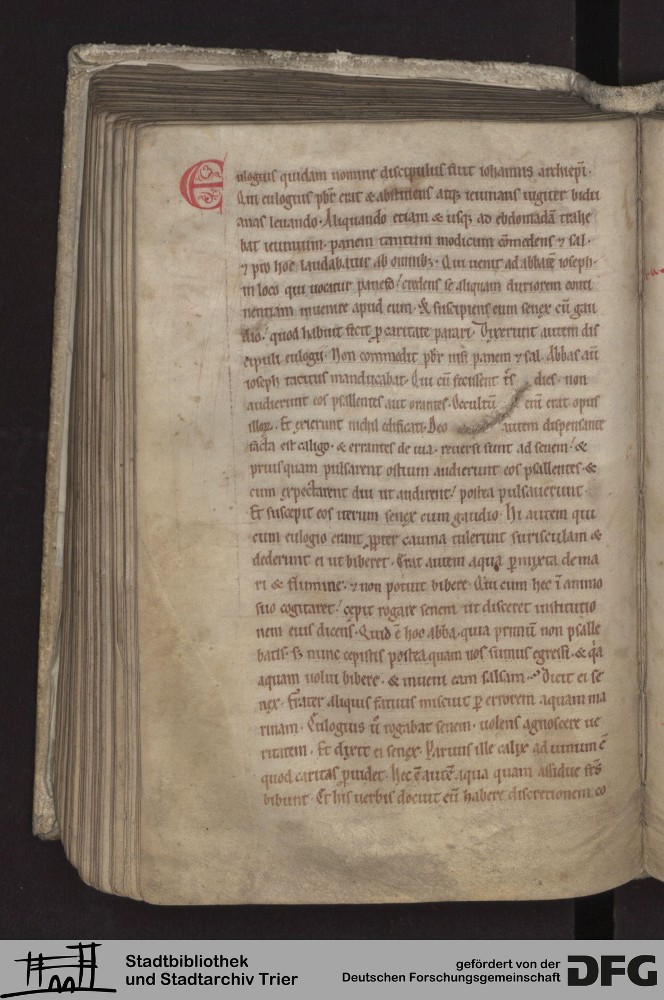 Eulogius quidam nomine discipulus fuit iohannis archiepī.
Qui eulogius pbr̄ erat & abstinens atqȝ ieiunans iugiter bidu
anas leuando. Aliquando etiam & usqȝ ad ebdomadā trahe
bat ieiunium. panem tantum modicum cōmedens ⁊ sal.
⁊ pro hoc laudabatur ab omnibȝ. Qui uenit ad abbatē ioseph.
in loco qui uocatur panefo. credens se aliquam duriorem conti
nentiam inuenire apud eum. & suscipiens eum senex cū gau
dio. quod habuit fecit ꝑ caritate parari. Dixerunt autem dis
cipuli eulogii. Non commedit pbr̄ nisi panem ⁊ sal. Abbas aū
ioseph tacitus manducabat. Qui cū fecissent tr̄s dies. non
audierunt eos psallentes aut orantes. Occultū enī erat opus
illoꝝ. Et exierunt nichil edificati. Deo autem dispensante
facta est caligo. & errantes de uia. reuersi sunt ad senem. &
priusquam pulsarent ostium audierunt eos psallentes. &
cum expectarent diu ut audirent. postea pulsauerunt.
Et suscepit eos iterum senex cum gaudio. Hi autem qui
cum eulogio erant ꝓpter cauma tulerunt surisculam &
dederunt ei ut biberet. Erat autem aqua ꝑmixta de ma
ri & flumine. ⁊ non potuit bibere. Qui cum hec ī animo
suo cogitaret. cepit rogare senem ut disceret institutio
nem eius dicens. Quid ē hoc abba. quia primū non psalle
batis. sȝ nunc cepistis postea quam nos sumus egressi. & q̄a
aquam uolui bibere. & inueni eam salsam. Dicit ei se
nex. Frater aliquis fatuus miscuit ꝑ errorem aquam ma
rinam. Eulogius ū rogabat senem. uolens agnoscere ue
ritatem. Et dixit ei senex. Paruus ille calix ad uinum ē
quod caritas ꝓuidet. Hec ē autē aqua quam assidue frs̄
bibunt. Et his uerbis docuit eū habere discretionem. co
Stadtbibliothek
und Stadtarchiv Trier
gefördert von der
Deutschen Forschungsgemeinschaft
DFG